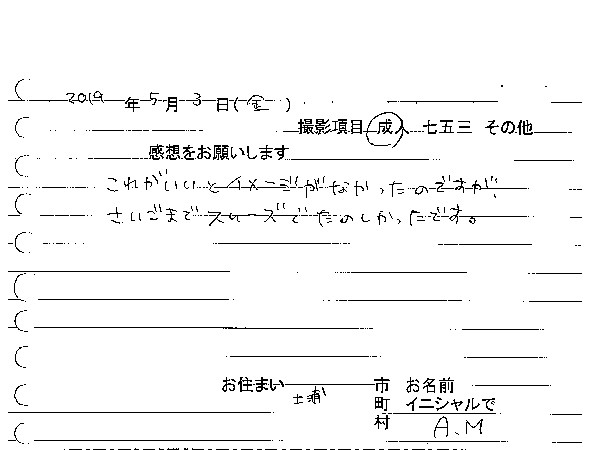 2019 年 5 月 3 日 (金)
撮影項目 成人 七五三 その他
感想をお願いします
これがいいとイメージがなかったのですが、
さいごまでスムーズでたのしかったです。
お住まい 土浦 市 お名前
町 イニシャルで
村 A.M